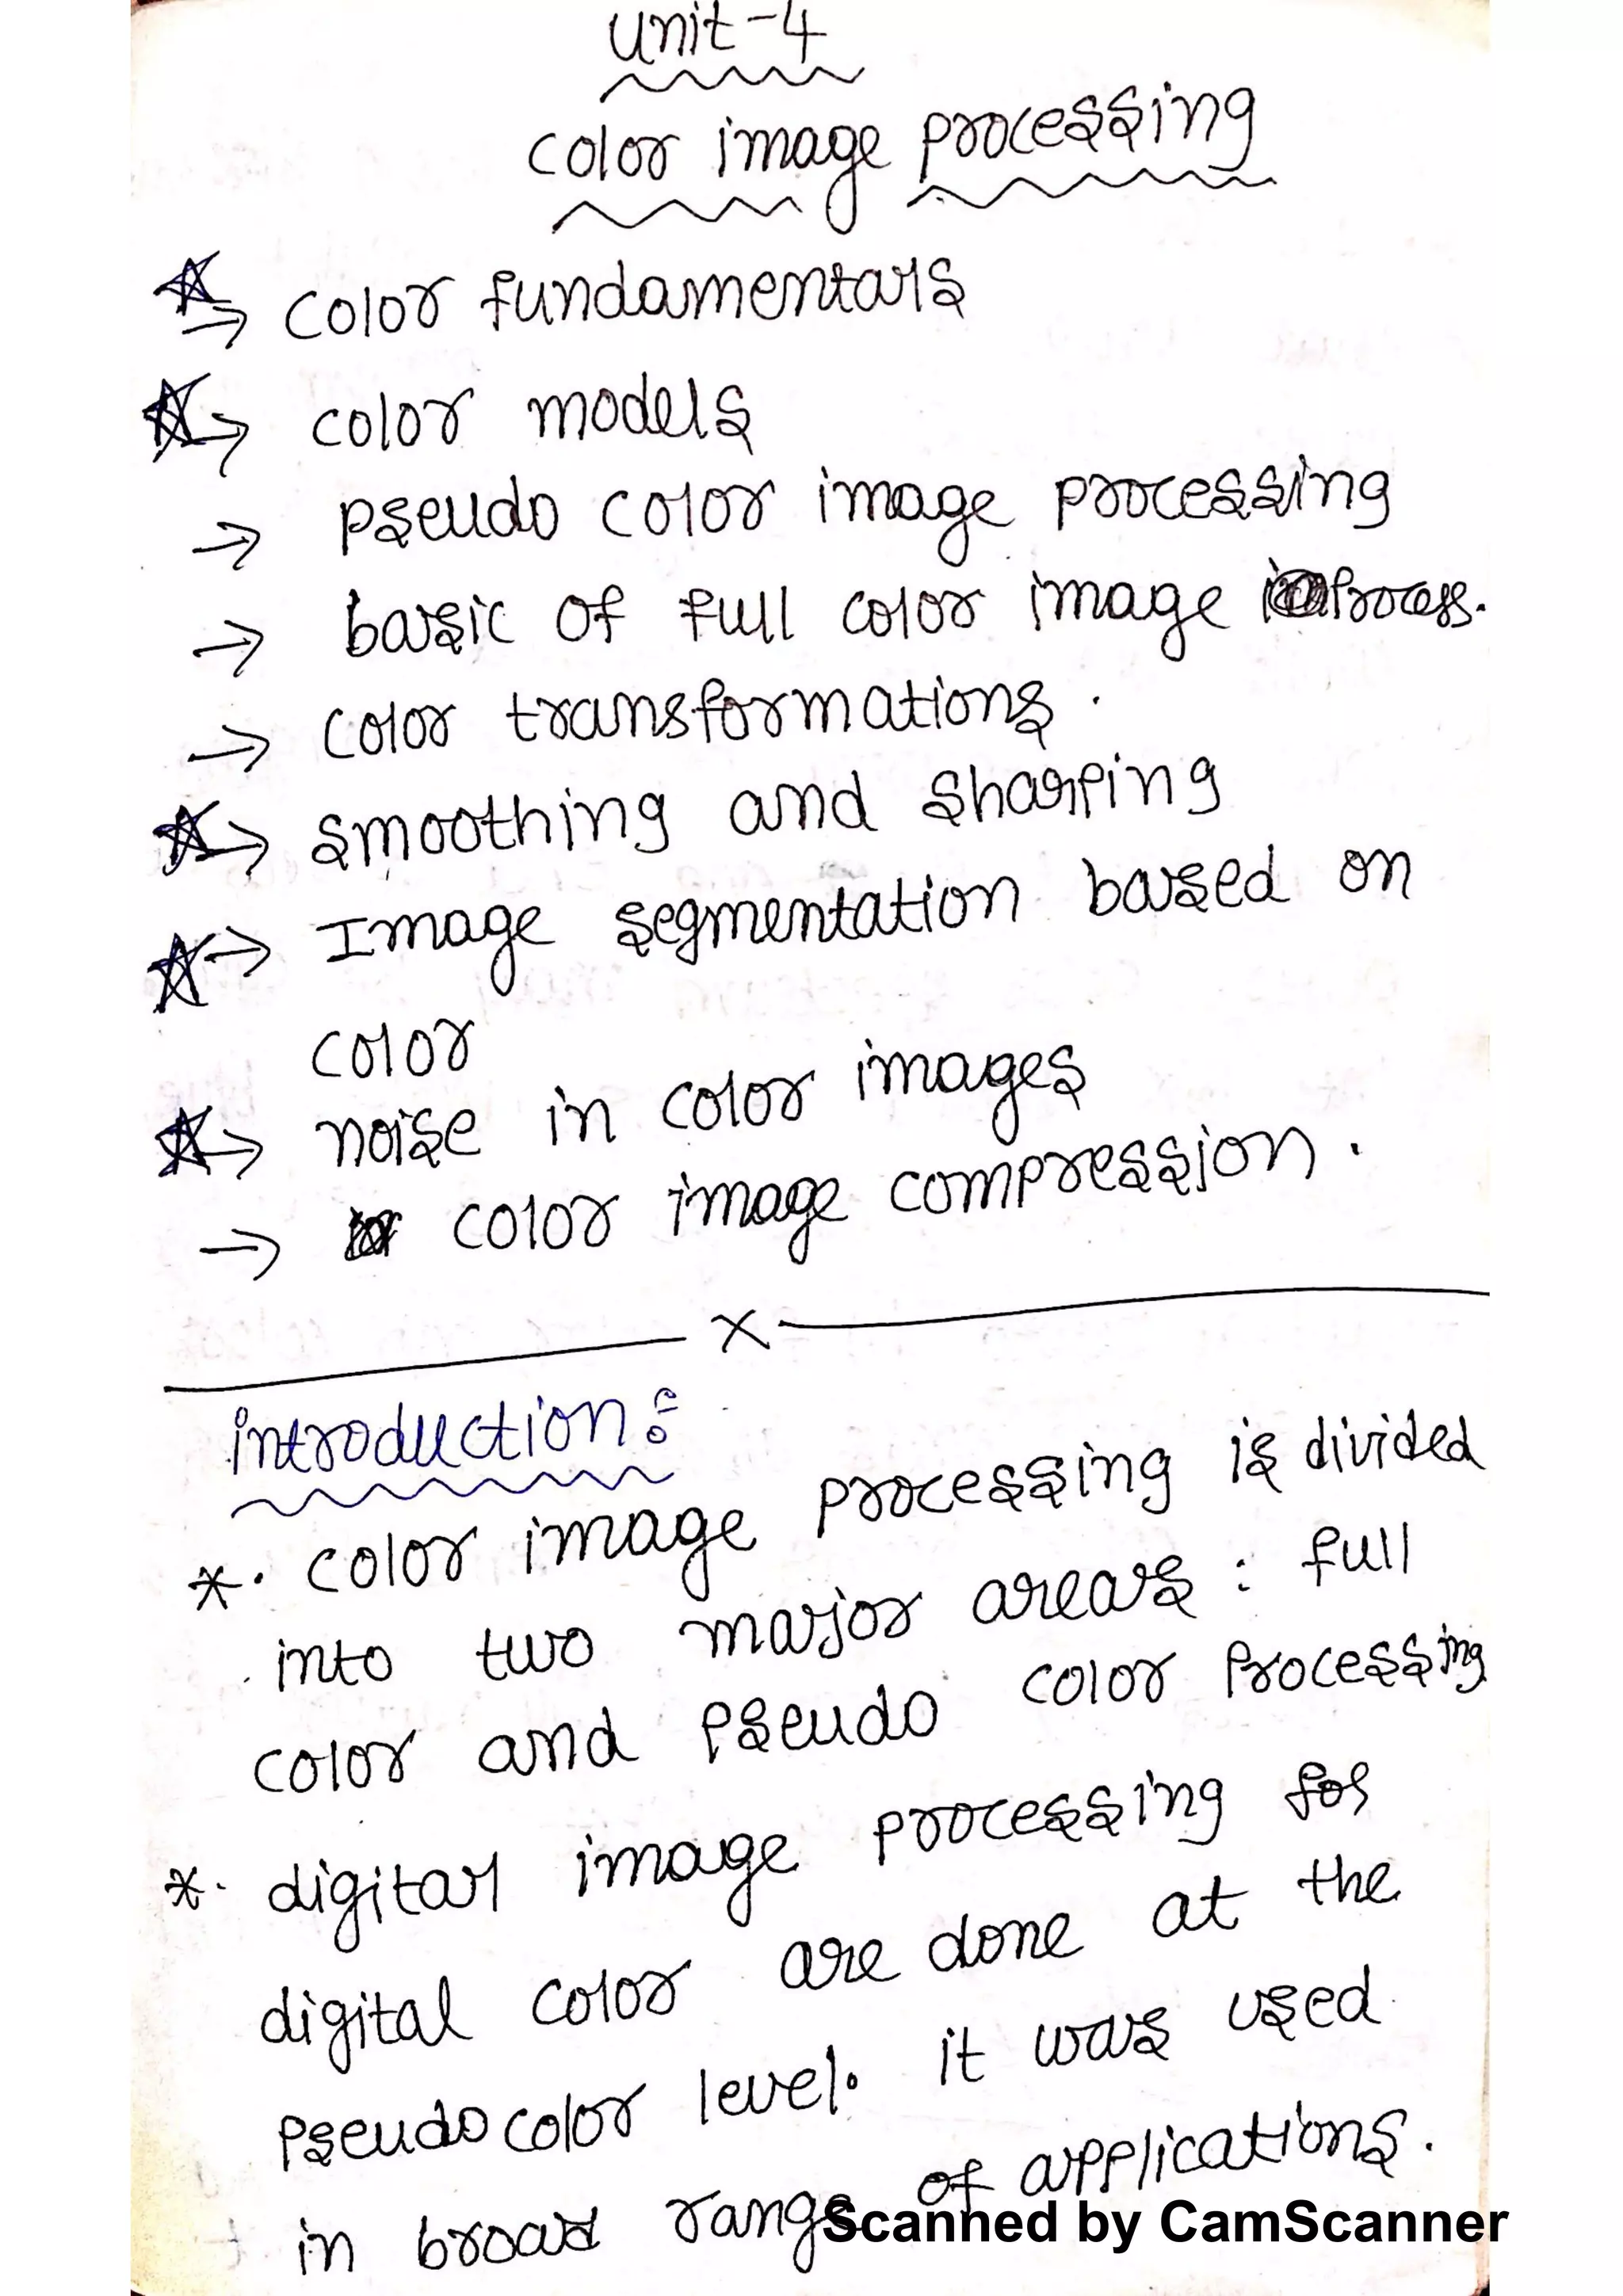 unit-4
color image processing
☆→ color fundamentals
☆→ color models
→ pseudo color image processing
→ basic of full color image process.
→ color transformations.
☆→ smoothing and sharping
☆→ Image segmentation based on
color
☆→ noise in color images
→ color image compression.
x
introduction:
*. color image processing is divided
into two major areas : full
color and pseudo color processing
*. digital image processing for
digital color are done at the
pseudo color level. it was used
in broad range of applications.
Scanned by CamScanner